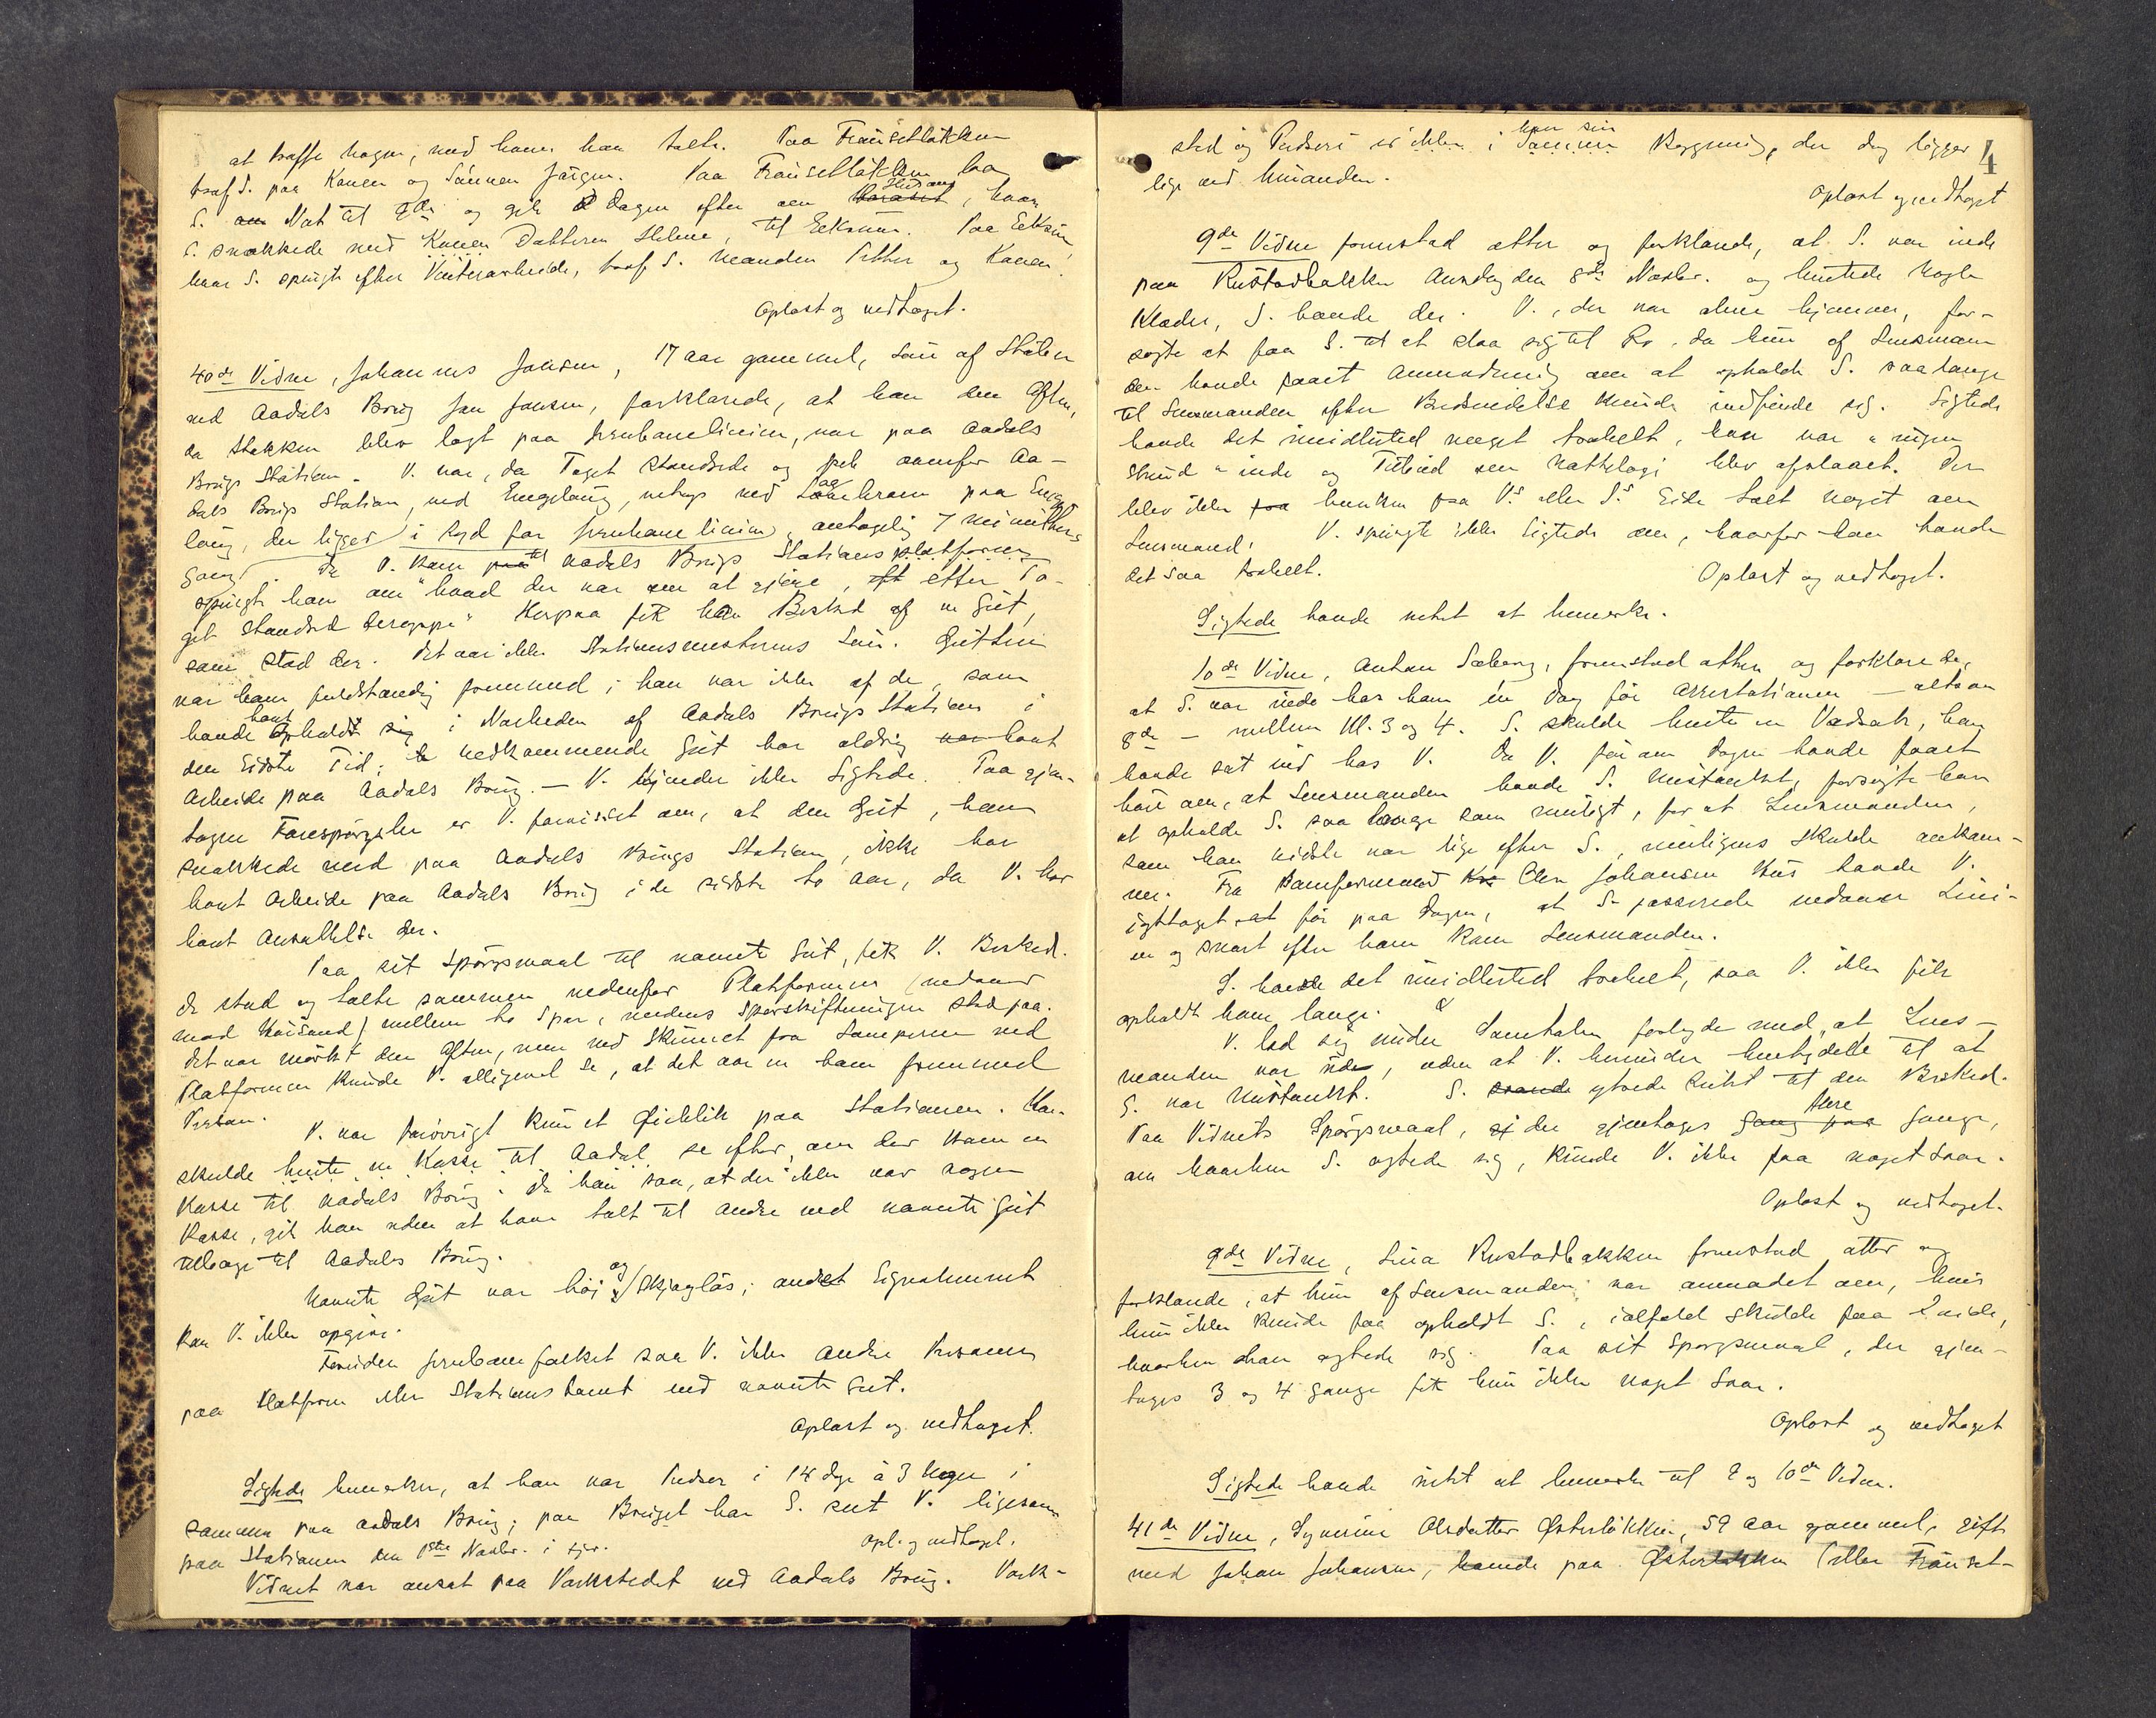 at træffe nogen, med hvem han talte. Paa Frøisetløkken
traf S. paa Konen og Sønnen Jørgen. Paa Frøisetløkken laa
S. om Nat til 9de og gik Dagen efter om Stedsang, hvor
S. snakkede med Konen, Datteren Helene, til Eeksum. Paa Eeksum
hvor S. spurgte efter Vinterarbeide, traf S. Manden Petter og Konen.
Oplæst og vedtaget.
40de Vidne, Johannes Jonsen, 17 Aar gammel, Søn af
ved Aadals Brug Jon Jonsen, forklarede, at han den Aften,
da Stokken blev lagt paa Jernbanelinien, var paa Aadals
Brugs Station. V. var, da Toget standsede og peb ovenfor Aa-
dals Brugs Station, ved Engelaug, netop ved Laavebroen paa Enge-
laug, der ligger i Syd for Jernbanelinien, antagelig 7 Minutters
Gang. Da V. kom til Aadals Brugs Stations platform
spurgte han om "hvad der var om at gjøre, efter To-
get standsed deroppe". Herpaa fik han Besked af en Gut,
som stod der. Det var ikke Stationsmesterens Søn. Gutten
var ham fuldstændig fremmed; han var ikke af de, som
havde havt Ophold i Nærheden af Aadals Brugs Station i
den sidste Tid; vedkommende Gut har aldrig havt
Arbeide paa Aadals Brug. — V. kjender ikke Sigtede. Paa gjen-
tagen Forespørgsler er V. forvisset om, at den Gut, han
snakkede med paa Aadals Brugs Station, ikke har
havt Arbeide paa Aadals Brug i de sidste to Aar, da V. har
havt Ansættelse der.
Paa sit Spørgsmaal til nævnte Gut, fik V. Besked.
De stod og talte sammen nedenfor Platformen (nedover
mod Kaisrud) mellem to Spor, medens Sporskiftningen stod paa.
Det var mørkt den Aften, men ved Skinnet fra Lamperne ved
Platformen kunde V. alligevel se, at det var en ham fremmed
Person.
V. var forøvrigt kun et Øieblik paa Stationen. Han
skulde hente en Kasse til Aadal se efter, om der kom en
Kasse til Aadals Brug. Da han saa, at der ikke var nogen
Kasse, gik han uden at have talt til andre end nævnte Gut
tilbage til Aadals Brug.
Nævnte Gut var høi og skjægløs; andet Signalement
kan V. ikke opgive.
Foruden Jernbanefolket saa V. ikke andre Personer
paa Platform eller Stationstomt end nævnte Gut.
Oplæst og vedtaget.
Sigtede bemerker, at han var Pudser i 14 Dage à 3 Uger i
Sommer paa Aadals Brug; paa Bruget har S. seet V. ligesom
paa Stationen den 1ste Novbr. i
Opl. og vedtaget.
Vidnet var ansat paa Værkstedet ved Aadals Brug. Værk-
4
sted og Pudseri er ikke i samme Bygning, der dog ligger
lige ved hinanden.
Oplæst og vedtaget
9de Vidne fremstod atter og forklarede, at S. var inde
paa Rustadbakken Onsdag den 8de Novbr. og hentede nogle
Klæder, S. havde der. V., der var alene hjemme, for-
søgte at faa S. til at slaa sig til Ro, da hun af Lensmann
en havde faaet Anmodning om at opholde S. saa længe
til Lensmanden efter Budsendelse kunde indfinde sig. Sigtede
havde det imidlertid meget travelt, han var "ingen
Stund" inde og Tilbud om Nattelogi blev afslaaet. Der
blev ikke hverken fra V.s eller S.s Side talt noget om
Lensmand. V. spurgte ikke Sigtede om, hvorfor han havde
det saa travelt.
Oplæst og vedtaget.
Sigtede havde intet at bemerke.
10de Vidne, Anton Seberg, fremstod atter og forklarede,
at S. var inde hos ham en Dag før Arrestationen — altsaa
8de — mellem Kl. 3 og 4. S. skulde hente en Vadsæk, han
havde sat ind hos V. Da V. før om Dagen havde faaet
høre om, at Lensmanden havde S. mistænkt, forsøgte han
at opholde S. saa længe som muligt, for at Lensmanden,
som han vidste var lige efter S., muligens skulde ankom-
me. Fra Banformand Olen Johansen Kus havde V.
iagttaget før paa Dagen, at S. passerede nedover Lini-
en og snart efter ham kom Lensmanden.
S. havde det imidlertid travelt, saa V. ikke fik
opholdt ham længe.
V. lod sig under Samtalen forlyde med, at Lens-
manden var ude, uden at V. herunder hentydede til at
S. var mistænkt. S. ytrede intet til den Besked.
Paa Vidnets Spørgsmaal, der gjentoges flere Gange,
om hvorhen S. agtede sig, kunde V. ikke faa noget Svar.
Oplæst og vedtaget.
9de Vidne, Lina Rustadbakken fremstod atter og
forklarede, at hun af Lensmanden var anmodet om, hvis
hun ikke kunde faa opholdt S., ialfald skulde faa vide,
hvorhen han agtede sig. Paa sit Spørgsmaal, der gjen-
toges 3 og 4 Gange fik hun ikke noget Svar.
Oplæst og vedtaget
Sigtede havde intet at bemerke til 9 og 10de Vidne.
41de Vidne, Synerine Olsdatter Østerløkken, 59 Aar gammel, gift
med Johan Johansen, boende paa Østerløkken (eller Frøiset-